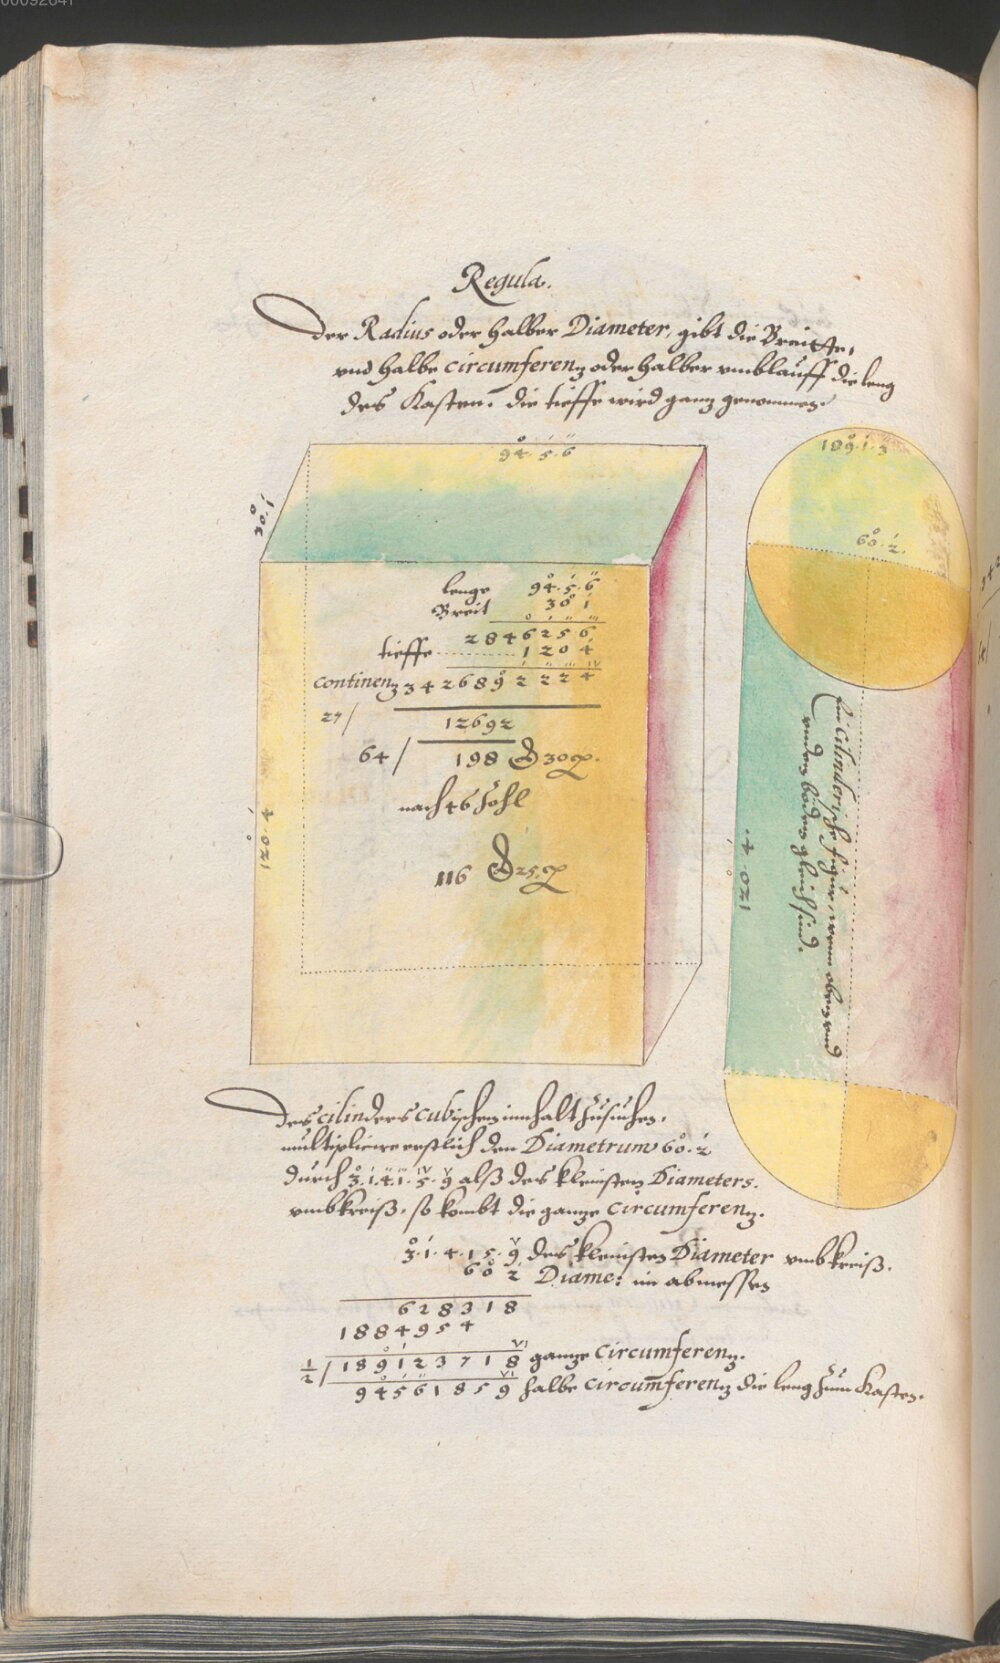 00092641
Regula.
Der Radius oder halber Diameter, gibt die Breitte,
vnd halbe circumferentz oder halber vmblauff die leng
des Kasten. die tieffe wird gantz genommen.
94. 5. 6
189. 1. 3
30. 1
60. 2.
lenge 94. 5. 6
Breit 30 1
2846256
tieffe 120 4
continentz 342689 2224
27/ 12692
64/ 198 30
nach 46 Zohl
116 25
120. 4
120. 4.
Ein cilindrische figur, wenn oben vnd
vnden böden gleich sind.
Des cilinders cubischen innhalt zusuchen.
multipliciere erstlich den Diametrum 60. 2
durch 3. 1. 4. 1. 5. 9 alß des kleinsten Diameters.
vmbkreiß. so kombt die gantze circumferentz.
3. 1. 4. 1 5. 9 des kleinsten Diameter vmbkreiß.
60 2 Diame: im abmessen
628318
1884954
1/2 / 1891237 1 8 gantze circumferentz.
94561859 halbe circumferentz die leng zum Kasten.